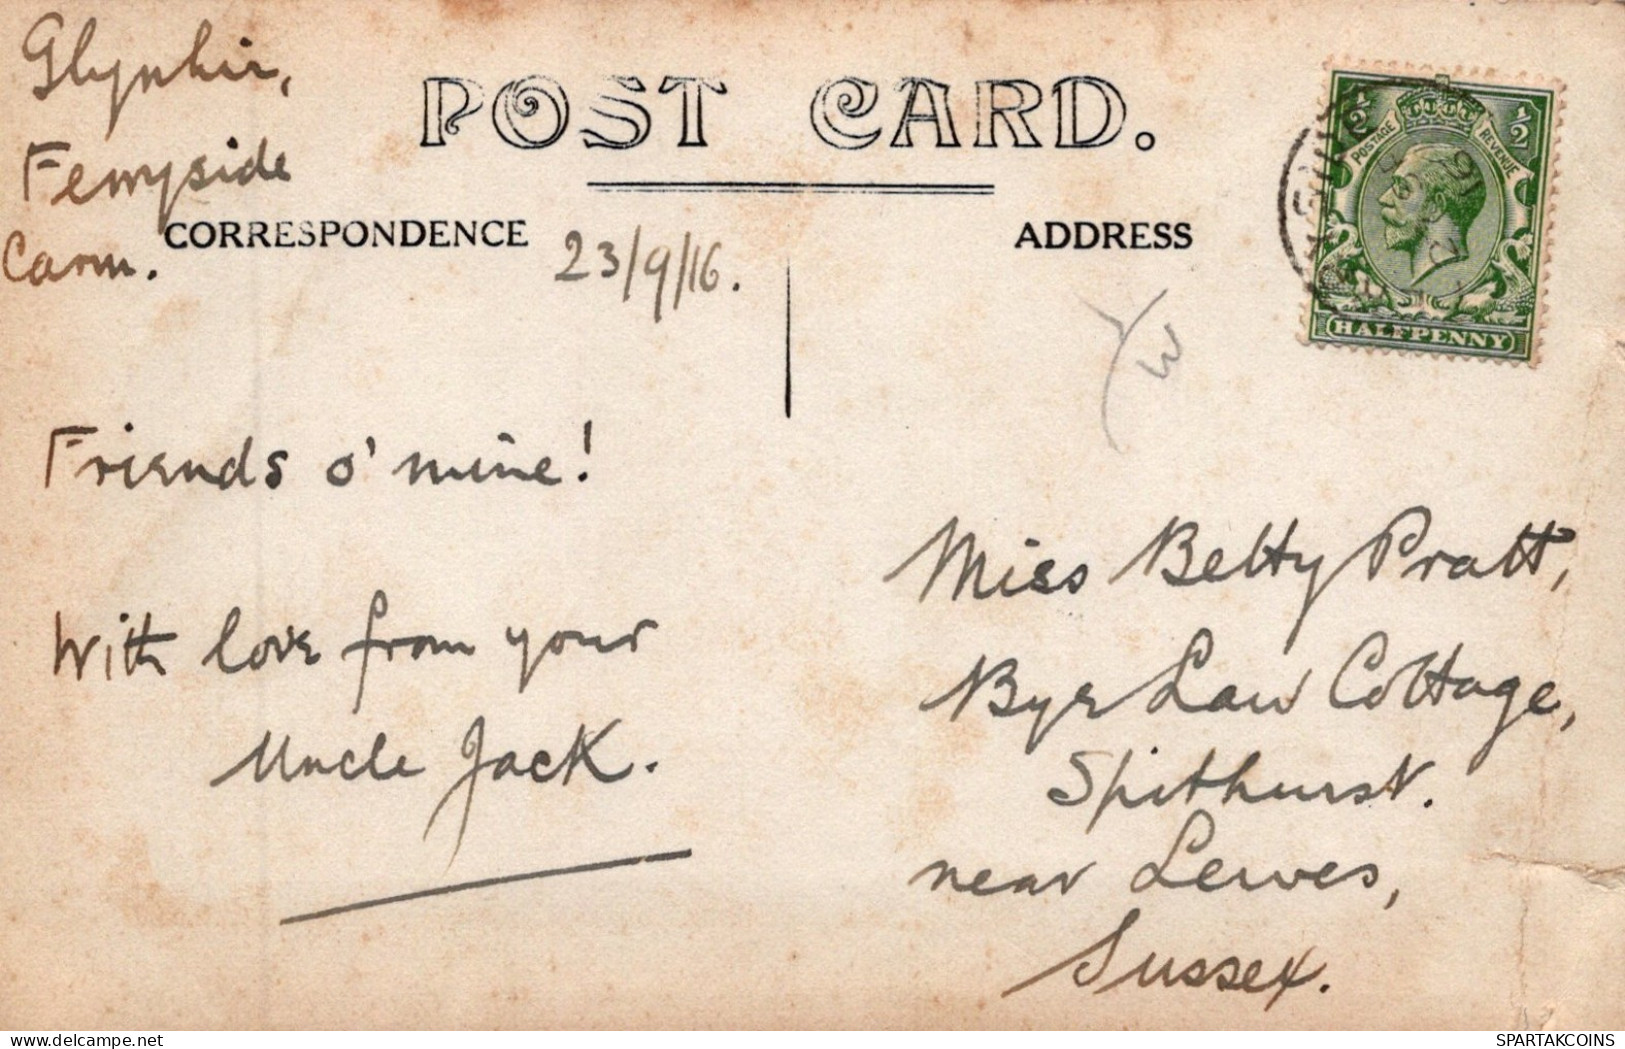 Glynhir,
Ferryside
Carm.
POST CARD.
CORRESPONDENCE
ADDRESS
23/9/16.
½ ½
POSTAGE REVENUE
HALFPENNY
Friends o' mine!
With love from your
Uncle Jack.
Miss Betty Pratt,
Bye Law Cottage,
Spithurst.
near Lewes,
Sussex.
SPARTAKCOINS